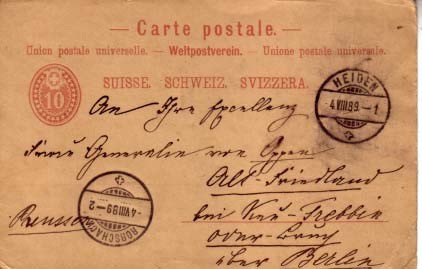 — Carte postale. —
Union postale universelle. — Weltpostverein. — Unione postale universale.
SUISSE. SCHWEIZ. SVIZZERA.
10
HEIDEN
-4.VIII.89.-1
An Ihre Excellenz
Frau Generalin von Oppen
Alt-Friedland
bei Neu-Trebbin
Oder-Bruch
über Berlin
Preussen
RORSCHACH
-4.VIII.89-2